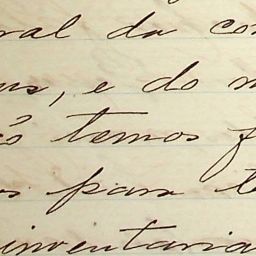 ral da con
, e do
ó temos f
s para
inventaria